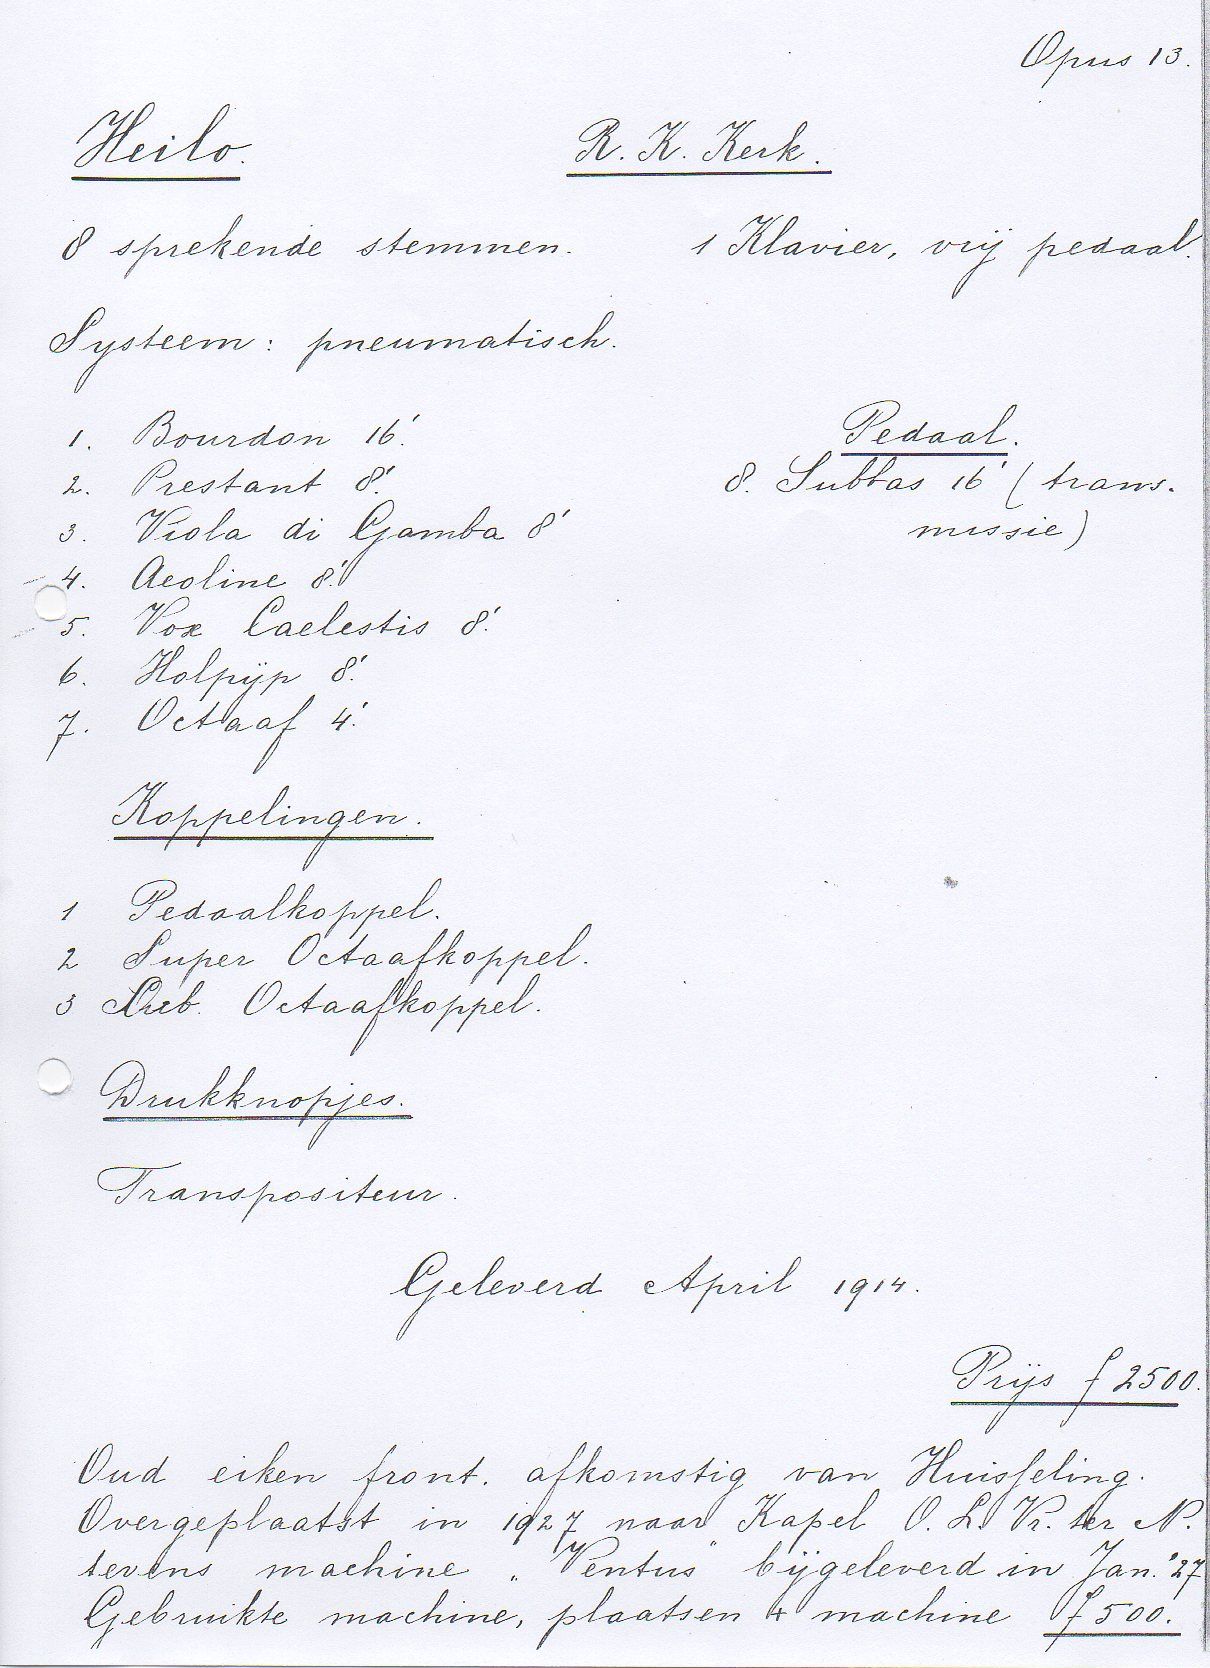 Opus 13.
Heilo. R. K. Kerk.
8 sprekende stemmen. 1 Klavier, vrij pedaal.
Systeem: pneumatisch.
1. Bourdon 16'. Pedaal.
2. Prestant 8'. 8. Subbas 16' (trans-
3. Viola di Gamba 8' missie)
4. Aeoline 8'.
5. Vox Caelestis 8'.
6. Holpijp 8'.
7. Octaaf 4'.
Koppelingen.
1 Pedaalkoppel.
2 Super Octaafkoppel.
3 Sub. Octaafkoppel.
Drukknopjes.
Transpositeur.
Geleverd April 1914.
Prijs f 2500.
Oud eiken front. afkomstig van Huisseling.
Overgeplaatst in 1927 naar Kapel O. L. Vr. ter N.
tevens machine „Ventus" bijgeleverd in Jan. '27
Gebruikte machine, plaatsen + machine f 500.